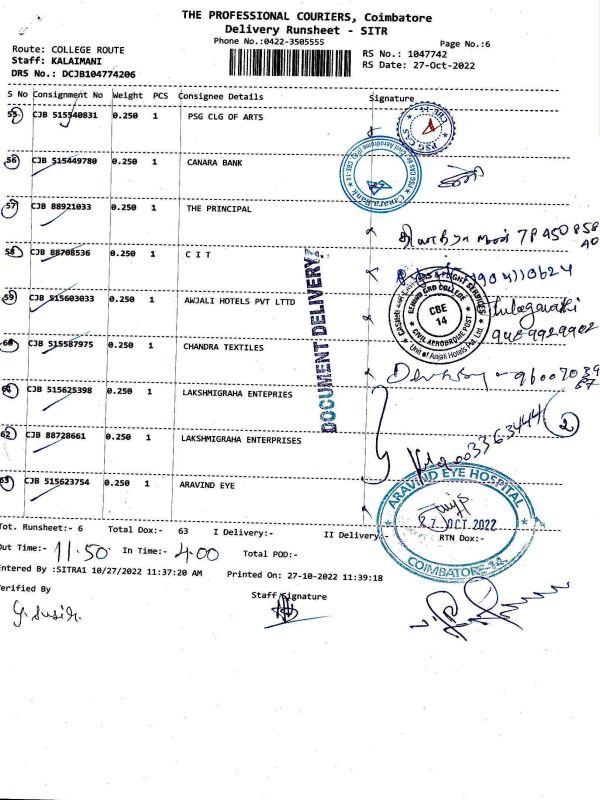 THE PROFESSIONAL COURIERS, Coimbatore
Delivery Runsheet - SITR
Phone No.:0422-3505555
Page No.:6
Route: COLLEGE ROUTE
Staff: KALAIMANI
DRS No.: DCJB104774206
RS No.: 1047742
RS Date: 27-Oct-2022
S No Consignment No Weight PCS Consignee Details Signature
55 CJB 515540831 0.250 1 PSG CLG OF ARTS
PSG CAS
56 CJB 515449780 0.250 1 CANARA BANK
Canara Bank
57 CJB 88921033 0.250 1 THE PRINCIPAL
58 CJB 88708536 0.250 1 C I T
DOCUMENT DELIVERY
59 CJB 515603033 0.250 1 AWJALI HOTELS PVT LTTD
CBE
14
CIVIL AERODROME POST
Unit of Anjali Hotels Pvt Ltd.
9489929902
60 CJB 515587975 0.250 1 CHANDRA TEXTILES
61 CJB 515625398 0.250 1 LAKSHMIGRAHA ENTEPRIES
62 CJB 88728661 0.250 1 LAKSHMIGRAHA ENTERPRISES
2
63 CJB 515623754 0.250 1 ARAVIND EYE
ARAVIND EYE HOSPITAL
27 OCT 2022
COIMBATORE-14
Tot. Runsheet:- 6 Total Dox:- 63 I Delivery:- II Delivery:- RTN Dox:-
Out Time:- 11.50 In Time:- 4.00 Total POD:-
Entered By :SITRA1 10/27/2022 11:37:20 AM Printed On: 27-10-2022 11:39:18
Verified By Staff Signature